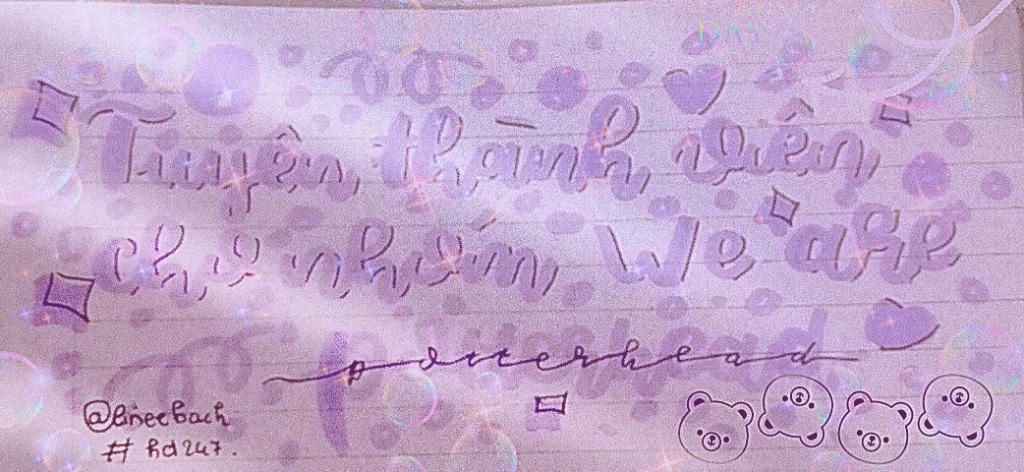 Tuyển thành viên
cho nhóm We are
potterhead
@bneebach
# hd247.